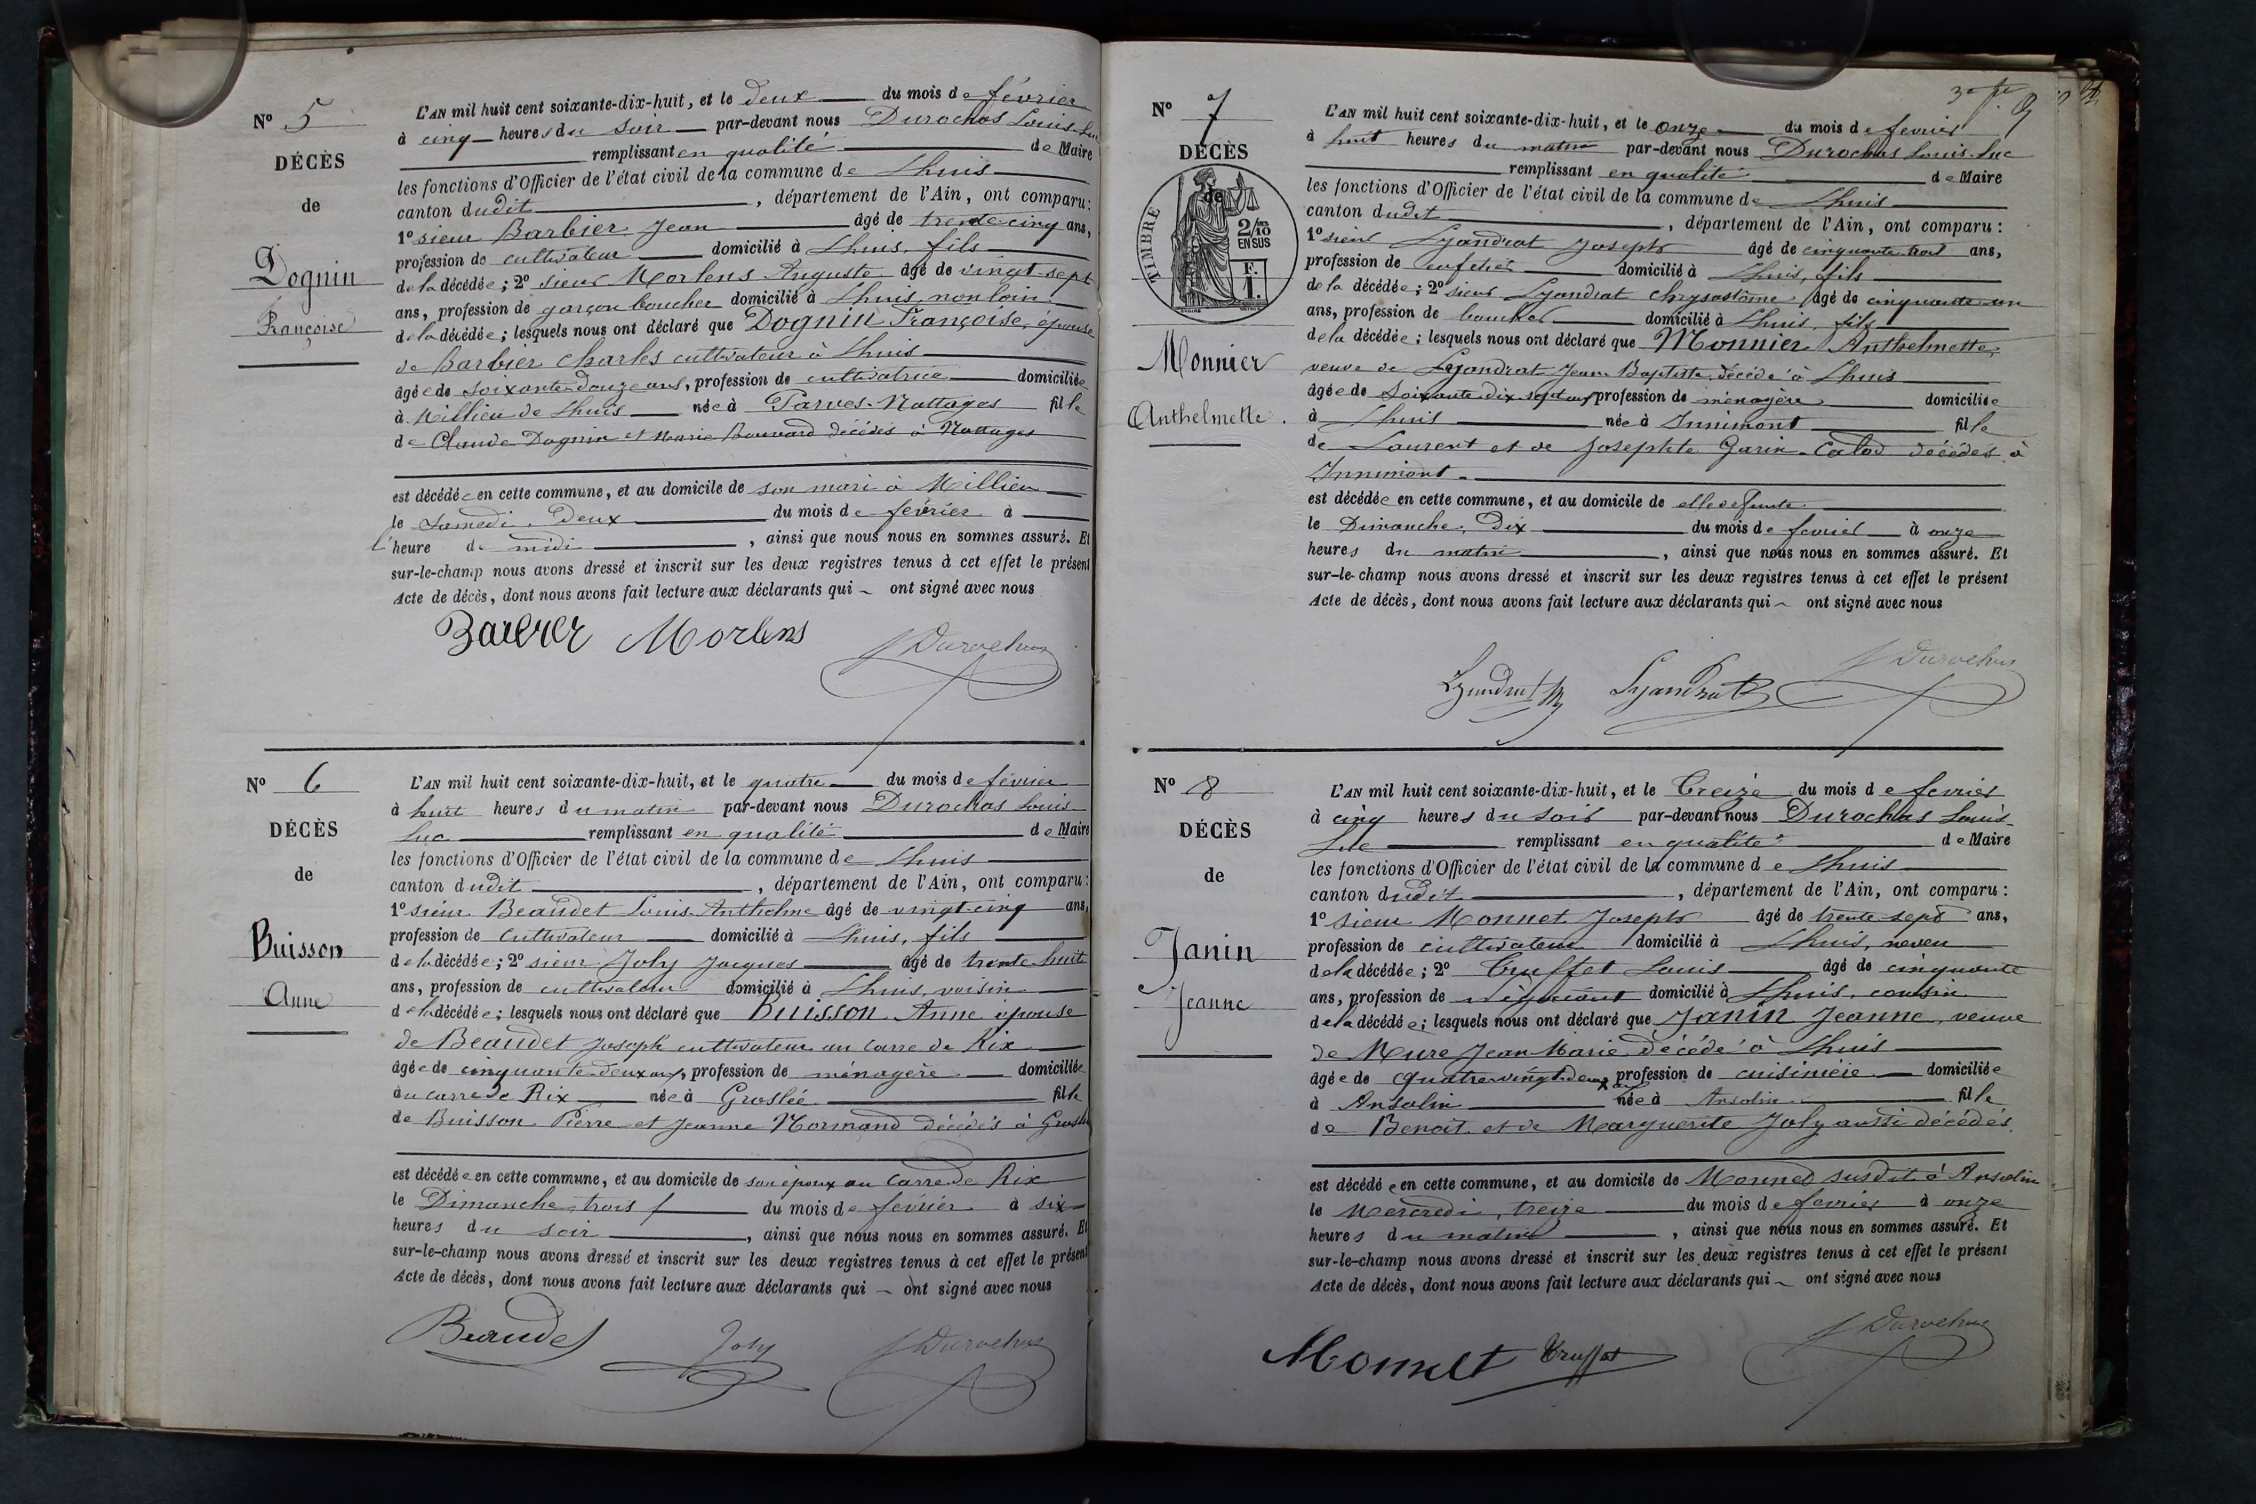 N° 5
DÉCÈS
de
Dognin
Françoise
L'AN mil huit cent soixante-dix-huit, et le deux du mois de février
à cinq heures du soir par-devant nous Durochas Louis Luc
remplissant en qualité de Maire
les fonctions d'Officier de l'état civil de la commune de Lhuis
canton dudit , département de l'Ain, ont comparu :
1° sieur Barbier Jean âgé de trente cinq ans,
profession de cultivateur domicilié à Lhuis, fils
de la décédée ; 2° sieur Morlens Auguste âgé de vingt-sept
ans, profession de garçon boucher domicilié à Lhuis, non loin
de la décédée ; lesquels nous ont déclaré que Dognin Françoise, épouse
de Barbier Charles cultivateur à Lhuis
âgée de soixante-douze ans, profession de cultivatrice domiciliée
à Millieu de Lhuis née à Parves-Nattages fille
de Claude Dognin et Marie Bouvard décédés à Nattages
est décédée en cette commune, et au domicile de son mari à Millieu
le samedi. deux du mois de février à
l'heure de midi , ainsi que nous nous en sommes assuré. Et
sur-le-champ nous avons dressé et inscrit sur les deux registres tenus à cet effet le présent
Acte de décès, dont nous avons fait lecture aux déclarants qui ~ ont signé avec nous
Barbier Morlens Durochas
N° 6
DÉCÈS
de
Buisson
Anne
L'AN mil huit cent soixante-dix-huit, et le quatre du mois de février
à huit heures du matin par-devant nous Durochas Louis
Luc remplissant en qualité de Maire
les fonctions d'Officier de l'état civil de la commune de Lhuis
canton dudit , département de l'Ain, ont comparu :
1° sieur Beaudet Louis Anthelme âgé de vingt-cinq ans,
profession de cultivateur domicilié à Lhuis, fils
de la décédée ; 2° sieur Joly Jacques âgé de trente huit
ans, profession de cultivateur domicilié à Lhuis, voisin
de la décédée ; lesquels nous ont déclaré que Buisson Anne épouse
de Beaudet Joseph cultivateur au Carre de Rix
âgée de cinquante-deux ans, profession de ménagère domiciliée
au carre de Rix née à Groslée fille
de Buisson Pierre et Jeanne Normand décédés à Groslée
est décédée en cette commune, et au domicile de son époux au Carre de Rix
le Dimanche, trois du mois de février à six
heures du soir , ainsi que nous nous en sommes assuré. Et
sur-le-champ nous avons dressé et inscrit sur les deux registres tenus à cet effet le présent
Acte de décès, dont nous avons fait lecture aux déclarants qui ~ ont signé avec nous
Beaudet Joly Durochas
N° 7
DÉCÈS
de
TIMBRE
2/10
EN SUS
F.
1.
Monnier
Anthelmette.
L'AN mil huit cent soixante-dix-huit, et le onze du mois de fevrier
à huit heures du matin par-devant nous Durochas Louis-Luc
remplissant en qualité de Maire
les fonctions d'Officier de l'état civil de la commune de Lhuis
canton dudit , département de l'Ain, ont comparu :
1° sieur Lyandrat Joseph âgé de cinquante trois ans,
profession de cafetier domicilié à Lhuis, fils
de la décédée ; 2° sieur Lyandrat Chrysostôme âgé de cinquante-un
ans, profession de boucher domicilié à Lhuis, fils
de la décédée ; lesquels nous ont déclaré que Monnier Anthelmette,
veuve de Lyandrat Jean Baptiste décédé à Lhuis
âgée de soixante-dix-sept ans profession de ménagère domiciliée
à Lhuis née à Innimont fille
de Laurent et de Josephte Garin-Calod décédés à
Innimont.
est décédée en cette commune, et au domicile de elle defunte
le Dimanche. Dix du mois de fevrier à onze
heures du matin , ainsi que nous nous en sommes assuré. Et
sur-le-champ nous avons dressé et inscrit sur les deux registres tenus à cet effet le présent
Acte de décès, dont nous avons fait lecture aux déclarants qui ~ ont signé avec nous
Lyandrat Lyandrat Durochas
N° 8
DÉCÈS
de
Janin
Jeanne
L'AN mil huit cent soixante-dix-huit, et le Treize du mois de fevrier
à cinq heures du soir par-devant nous Durochas Louis
Luc remplissant en qualité de Maire
les fonctions d'Officier de l'état civil de la commune de Lhuis
canton dudit , département de l'Ain, ont comparu :
1° sieur Monnet Joseph âgé de trente-sept ans,
profession de cultivateur domicilié à Lhuis, neveu
de la décédée ; 2° Truffet Louis âgé de cinquante
ans, profession de négociant domicilié à Lhuis, cousin
de la décédée ; lesquels nous ont déclaré que Janin Jeanne, veuve
de Mure Jean Marie décédé à Lhuis
âgée de quatre-vingt-deux ans profession de cuisinière domiciliée
à Ansolin née à Ansolin fille
de Benoit et de Marguerite Joly aussi décédés.
est décédée en cette commune, et au domicile de Monnet susdit à Ansolin
le Mercredi, treize du mois de fevrier à onze
heures du matin , ainsi que nous nous en sommes assuré. Et
sur-le-champ nous avons dressé et inscrit sur les deux registres tenus à cet effet le présent
Acte de décès, dont nous avons fait lecture aux déclarants qui ~ ont signé avec nous
Monnet Truffet Durochas